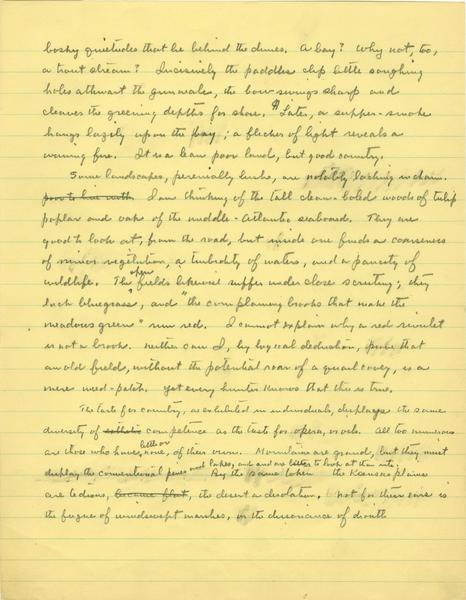 bosky quietudes that lie behind the dunes. A bay? Why not, too,
a trout stream? Incisively the paddles clip little soughing
holes athwart the gunwale, the bow swings sharp and
cleaves the greening depths for shore. ¶ Later, a supper-smoke
hangs lazily upon the bay; a flicker of light reveals a
evening fire. It is a lean poor land, but good country.
Some landscapes, perennially lush, are notably lacking in charm.
poor to live with. I am thinking of the tall clean-boled woods of tulip
poplar and oak of the middle-Atlantic seaboard. They are
good to look at, from the road, but inside one finds a coarseness
of minor vegetation, a turbidity of waters, and a paucity of
open
wildlife. The fields likewise suffer under close scrutiny; they
lack bluegrass, and "the complaining brooks that make the
meadows green" run red. I cannot explain why a red rivulet
is not a brook. Neither can I, by logical deduction, prove that
an old field, without the potential roar of a quail covey, is a
mere weed-patch. Yet every hunter knows that this is true.
The taste for country, as exhibited in individuals, displays the same
diversity of competence as the taste for opera, or oils. All too numerous
are those who have none, of their own. Mountains are grand, but they must
display the conventional pines and lakes, By the same token the Kansas plains
are tedious, became flat, the desert a desolation. Not for their ears is
the fugue of windswept marshes, or the dissonance of drouth